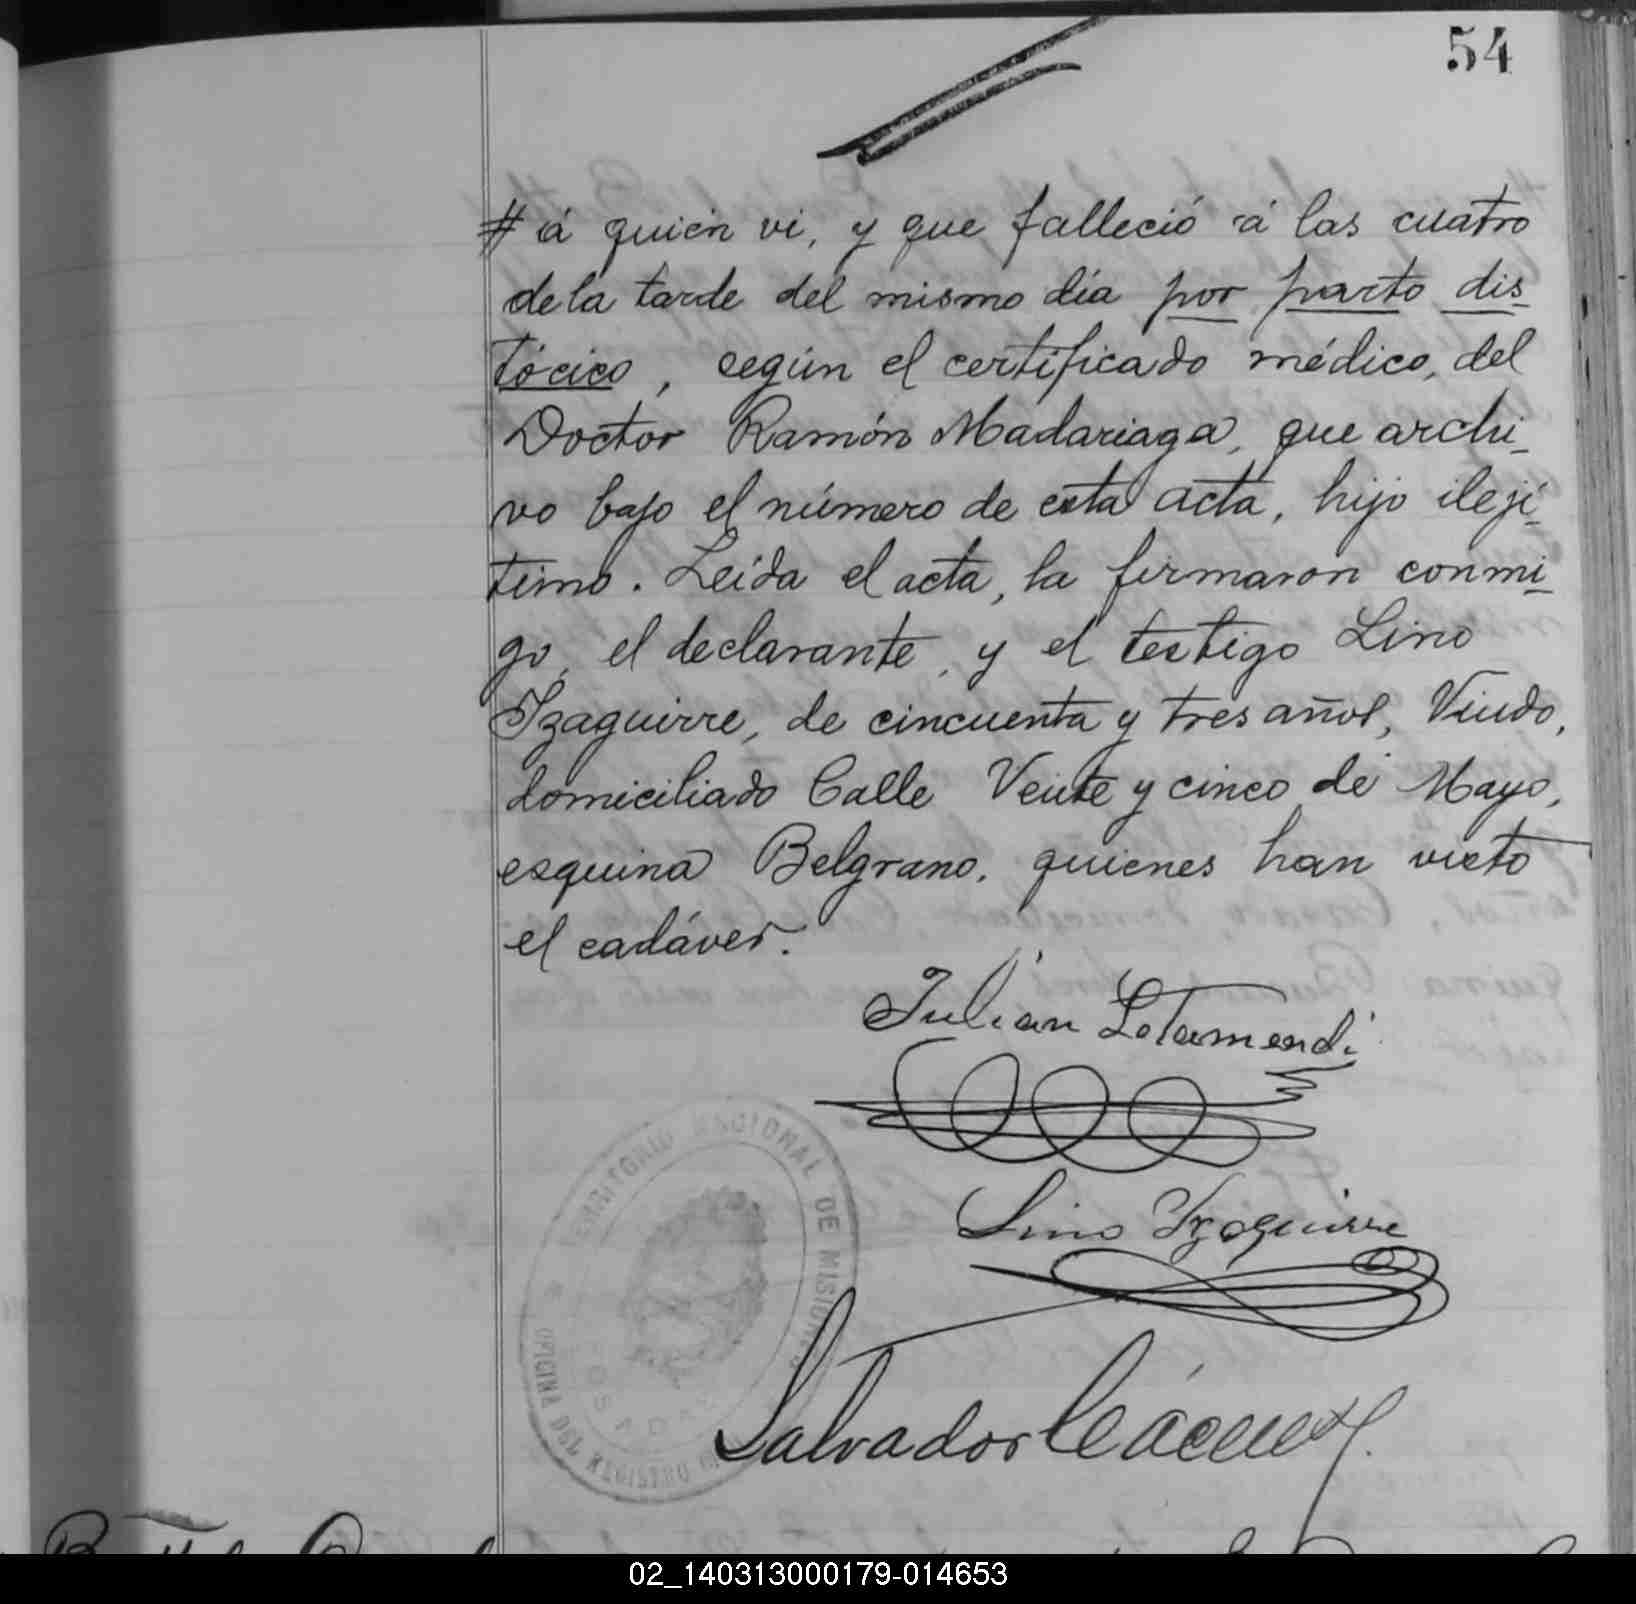 54
# á quien vi, y que falleció á las cuatro
de la tarde del mismo día por parto dis-
tócico, según el certificado médico, del
Doctor Ramón Madariaga, que archi-
vo bajo el número de esta acta, hijo ileji-
timo. Leída el acta, la firmaron conmi-
go, el declarante, y el testigo Lino
Yzaguirre, de cincuenta y tres años, Viudo,
domiciliado Calle Veinte y cinco de Mayo,
esquina Belgrano, quienes han visto
el cadáver.
Julian Letamendi
Lino Yzaguirre
TERRITORIO NACIONAL DE MISIONES
POSADAS
OFICINA DEL REGISTRO
Salvador
02_140313000179-014653